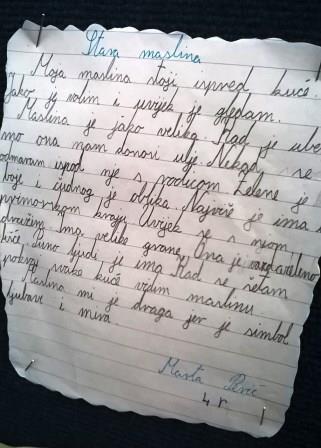 Stara maslina
Moja maslina stoji ispred kuće.
Jako ju volim i uvijek je gledam.
Maslina je jako velika. Kad je ube
mo ona nam donosi ulje. Nekad se
odmaram ispod nje s rodicom. Zelene je
boje i čudnog je oblika. Najviše je ima
primorskom kraju. Uvijek se s njom
družim. Ima velike grane. Ona je
kiće. Puno ljudi je ima. Kad se šetam
pokraj svake kuće vidim maslinu.
Maslina mi je draga jer je simbol
ljubavi i mira.
Marta
4. r